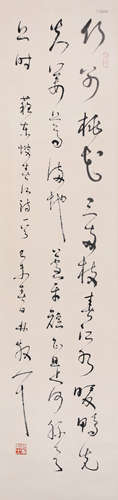 竹外桃花三兩枝春江水暖鴨先
知蔞蒿滿地蘆芽短正是河豚欲
上時 蘇東坡春江詩一首 己未春日林散耳